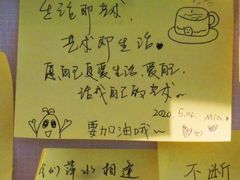 生活即艺术
艺术即生活
愿自己真爱生活、爱自己
活我自己的艺术~
2020.5.14. Mia.
要加油哦~
们萍水相逢
不断